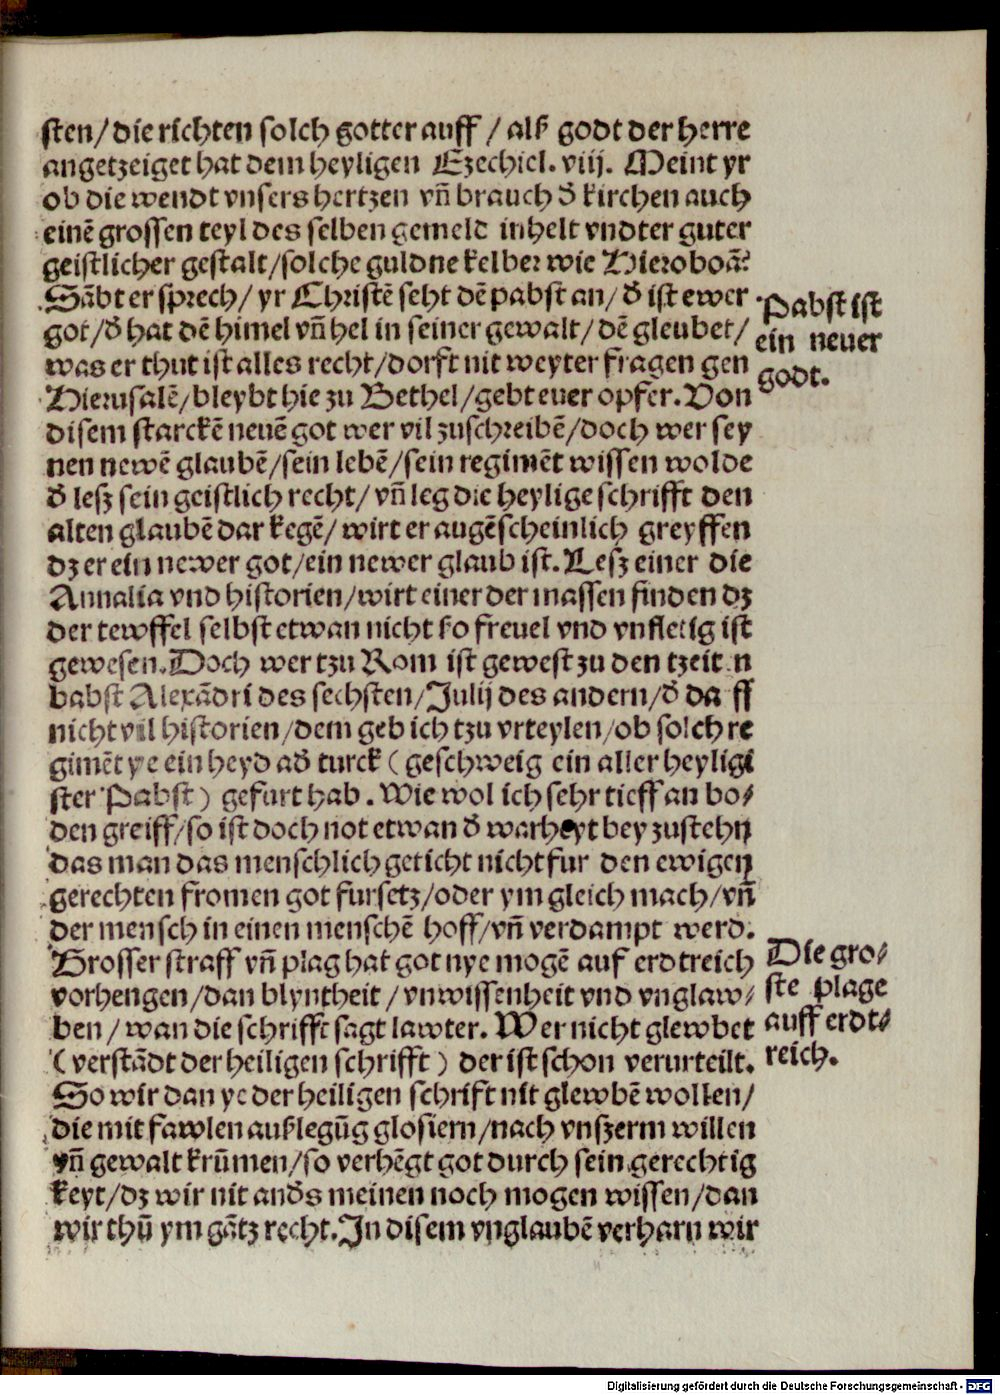 sten/die richten solch gotter auff / alß godt der herre
angetzeiget hat dem heyligen Ezechiel. viij. Meint yr
ob die wendt vnsers hertzen vñ brauch đ kirchen auch
einē grossen teyl des selben gemeld inhelt vndter guter
geistlicher gestalt/solche guldne kelber wie Hieroboā?
Sābt er sprech/ yr Christē seht dē pabst an/ đ ist ewer
got/đ hat dē himel vñ hel in seiner gewalt/ dē gleubet/
was er thut ist alles recht/dorft nit weyter fragen gen
Hierusalē/bleybt hie zu Bethel/gebt euer opfer. Von
disem starckē neuē got wer vil zuschreibē/doch wer sey
nen newē glaubē/sein lebē/sein regimēt wissen wolde
đ lesz sein geistlich recht/ vñ leg die heylige schrifft den
alten glaubē dar kegē/ wirt er augēscheinlich greyffen
dz er ein newer got/ein newer glaub ist. Lesz einer die
Annalia vnd historien/wirt einer der massen finden dz
der tewffel selbst etwan nicht ßo freuel vnd vnfletig ist
gewesen. Doch wer tzu Rom ist gewest zu den tzeit n
babst Alexādri des sechsten/Julij des andern/đ da ff
nicht vil historien/dem geb ich tzu vrteylen/ob solch re
gimēt ye ein heyd ađ turck ( geschweig ein aller heyligi
ster Pabst ) gefurt hab . Wie wol ich sehr tieff an bo⸗
den greiff/so ist doch not etwan đ warheyt bey zustehn
das man das menschlich geticht nicht fur den ewigen
gerechten fromen got fursetz/oder ym gleich mach/vñ
der mensch in einen menschē hoff/vñ verdampt werd.
Grosser straff vñ plag hat got nye mogē auf erdtreich
vorhengen/dan blyntheit / vnwissenheit vnd vnglaw⸗
ben / wan die schrifft sagt lawter. Wer nicht glewbet
( verstādt der heiligen schrifft ) der ist schon verurteilt.
So wir dan ye der heiligen schrift nit glewbē wollen/
die mit fawlen außlegūg glosiern/nach vnszerm willen
vñ gewalt krūmen/so verhēgt got durch sein gerechtig
keyt/dz wir nit anđs meinen noch mogen wissen/dan
wir thū ym gātz recht. In disem vnglaubē verharn wir
Pabst ist
ein neuer
godt.
Die gro⸗
ste plage
auff erdt⸗
reich.
Digitalisierung gefördert durch die Deutsche Forschungsgemeinschaft - DFG